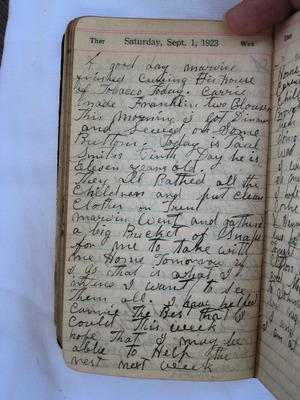 Ther Saturday, Sept. 1, 1923 Wea
A good day marvin
finished Cutting His house
of Tobacco Today. Carrie
made Franklin two Blouses
This morning I Got Dinner
and Sewed on Some
Buttons. Today is Paul
Smiths Birth Day he is
Eleven years old.
They all Bathed all the
Childrens and put clean
Clothes on Them
marvin Went and gathered
a big Bucket of Snaps
for me to take with
me Home Tomorrow if
I go that is what I
intend I want to see
Them all. I have helped
Carrie The Bes that I
Could This week
hope That I may be
able to Help the
rest next week